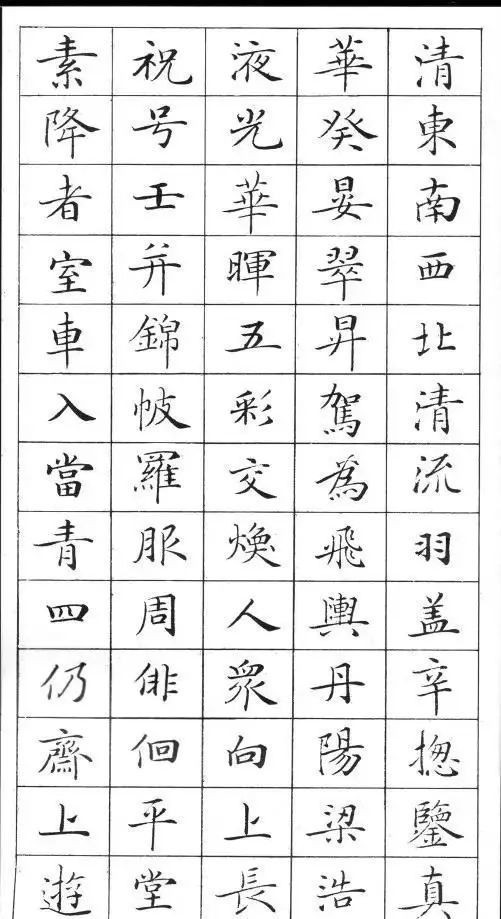 清東南西北清流羽盖辛揔鑒真
華癸晏翠昇駕為飛輿丹陽梁浩
液光華暉五彩交煥人衆向上長
祝号壬并錦帔羅服周俳佪平堂
素降者室車入當青四仍齋上遊